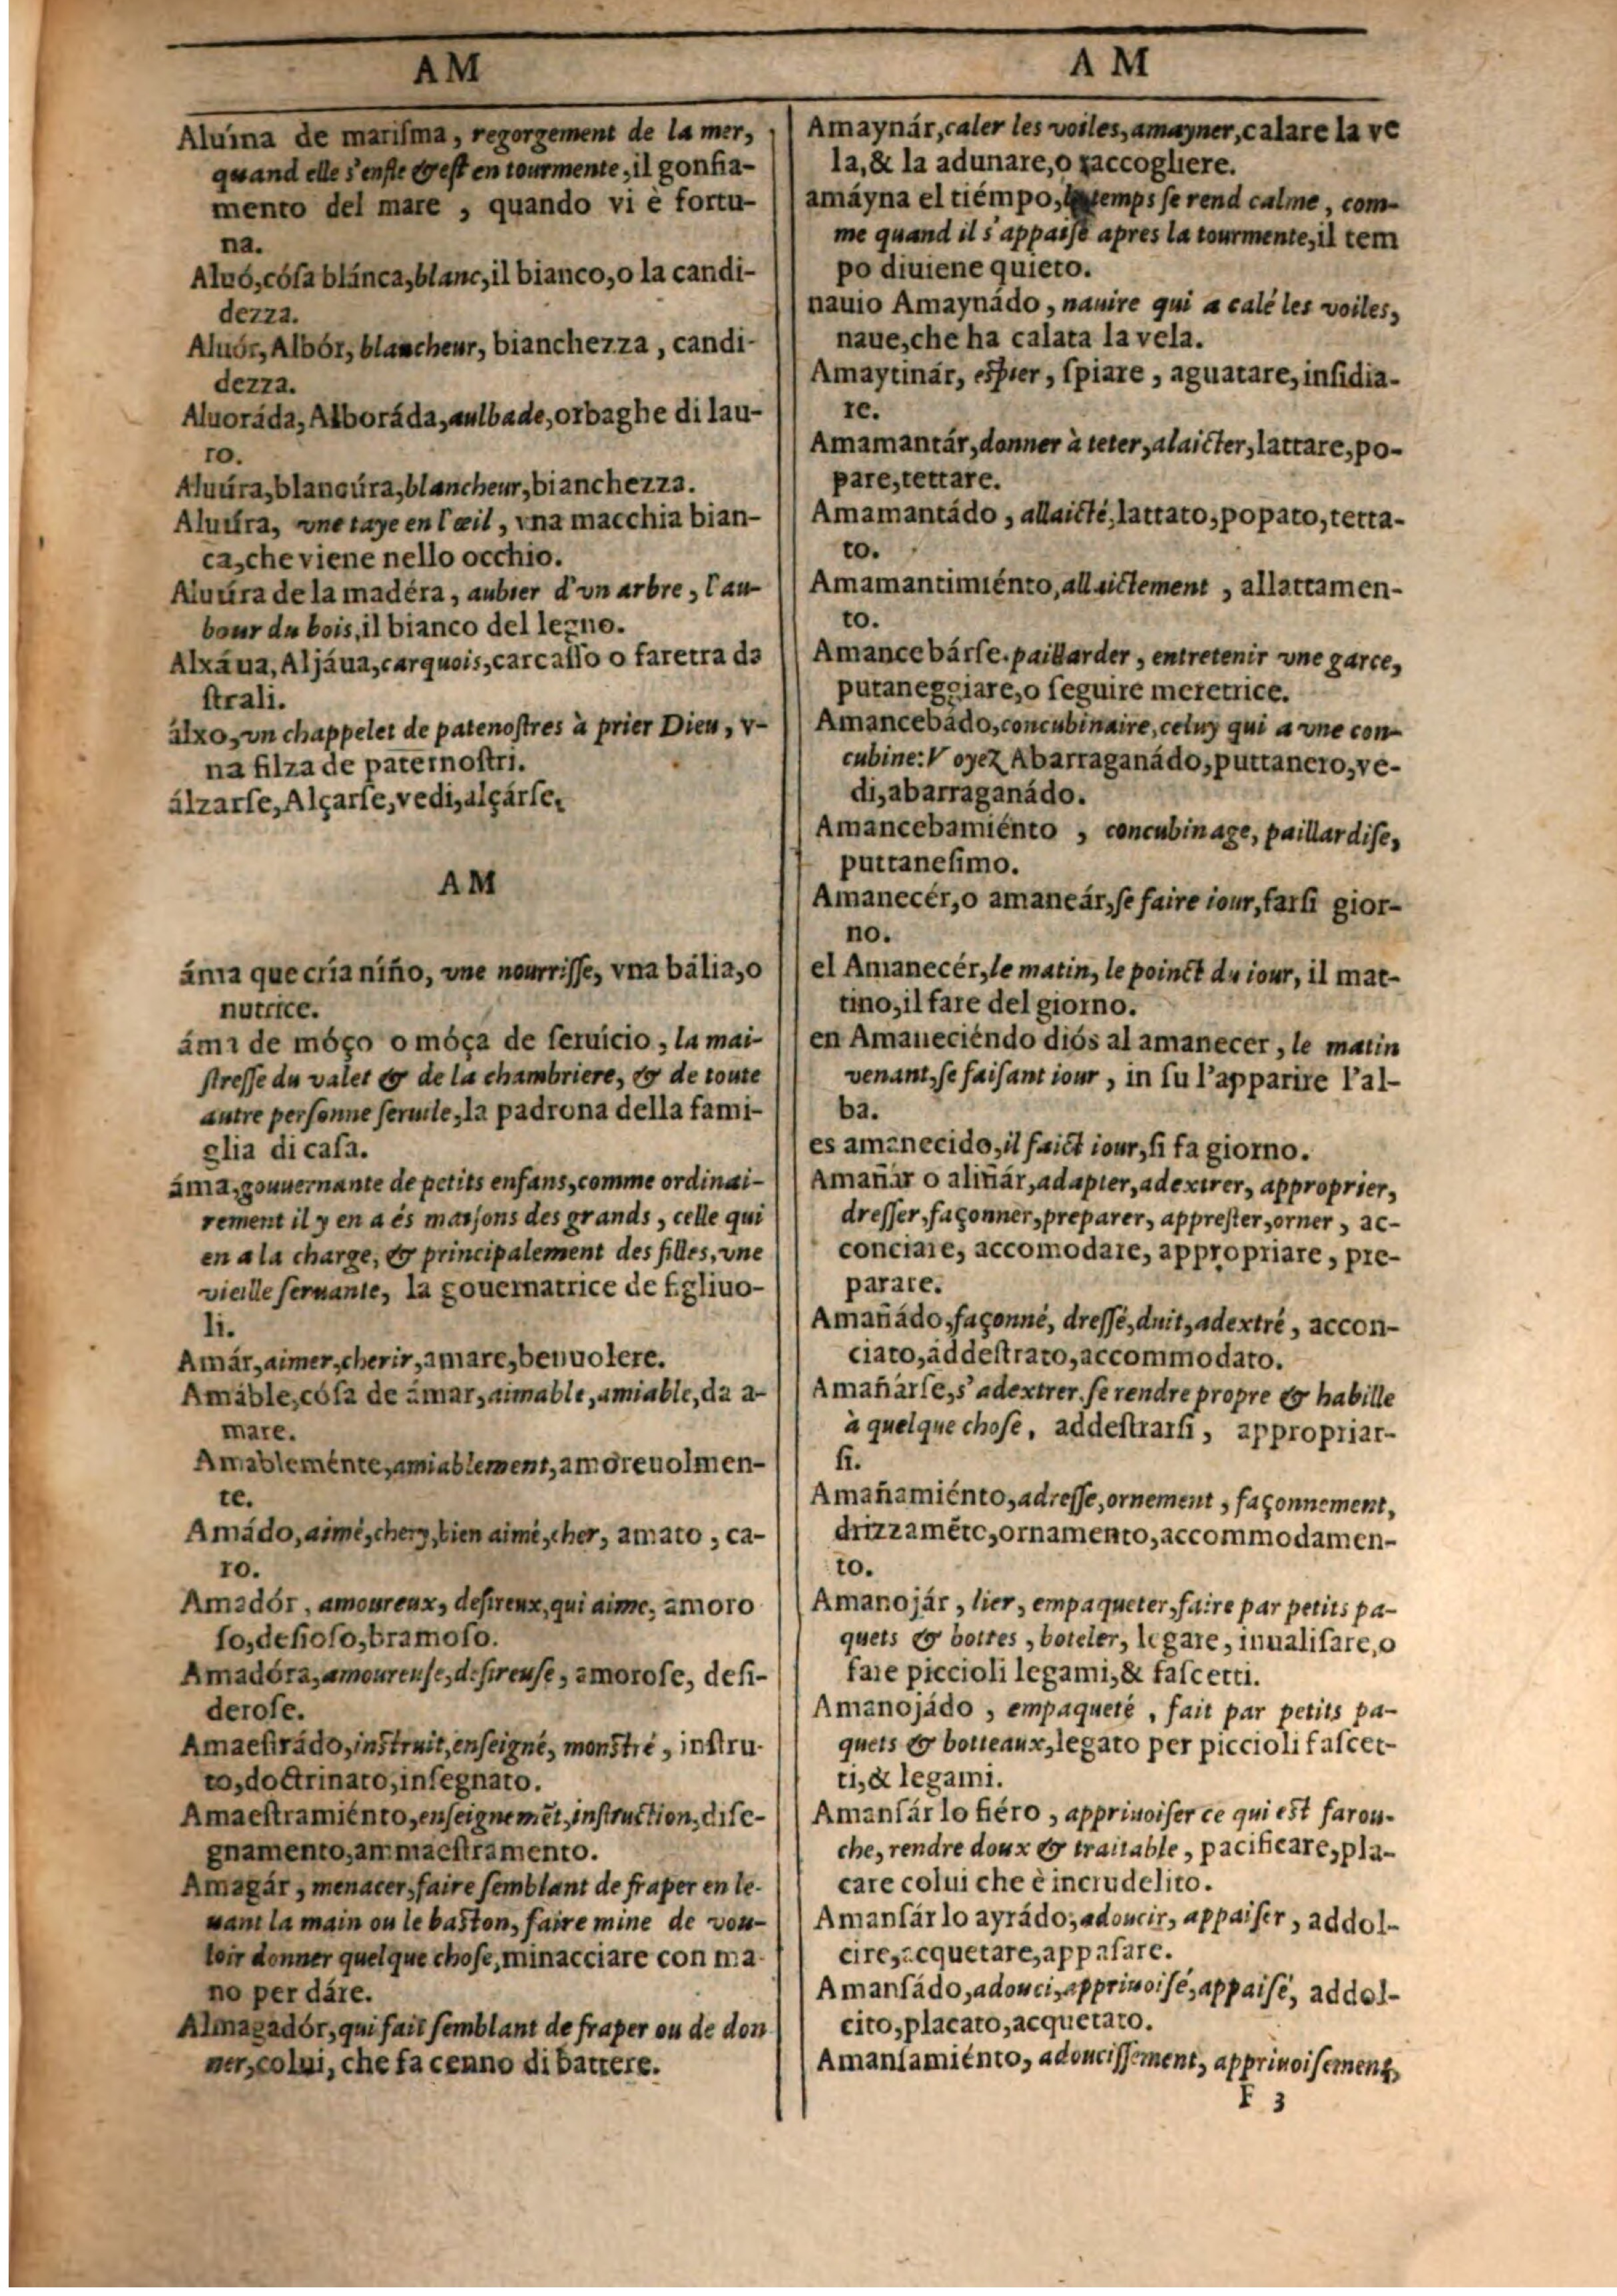 AM
Aluína de mariſma, regorgement de la mer,
quand elle s'enfle & est en tourmente, il gonfia-
mento del mare , quando vi è fortu-
na.
Aluó, cóſa blánca, blanc, il bianco, o la candi-
dezza.
Aluór, Albór, blancheur, bianchezza , candi-
dezza.
Aluoráda, Alboráda, aulbade, orbaghe di lau-
ro.
Aluúra, blancúra, blancheur, bianchezza.
Aluúra, vne taye en l'œil , vna macchia bian-
ca, che viene nello occhio.
Aluúra de la madéra , aubier d'vn arbre , l'au-
bour du bois, il bianco del legno.
Alxáua, Aljáua, carquois, carcaſſo o faretra da
ſtrali.
álxo, vn chappelet de patenoſtres à prier Dieu , v-
na filza de paternoſtri.
álzarſe, Alçarſe, vedi, alçárſe.
AM
áma que cría níño, vne nourriſſe, vna bália, o
nutrice.
áma de móço o móça de ſeruício , la mai-
ſtreſſe du valet & de la chambriere, & de toute
autre perſonne ſeruile, la padrona della fami-
glia di caſa.
áma, gouuernante de petits enfans, comme ordinai-
rement il y en a és maiſons des grands , celle qui
en a la charge, & principalement des filles, vne
vieille ſeruante, la gouernatrice de figliuo-
li.
Amár, aimer, cherir, amare, benuolere.
Amáble, cóſa de ámar, aimable, amiable, da a-
mare.
Amableménte, amiablement, amoreuolmen-
te.
Amádo, aimé, chery, bien aimé, cher, amato , ca-
ro.
Amadór , amoureux, deſireux, qui aime, amoro
ſo, deſioſo, bramoſo.
Amadóra, amoureuſe, deſireuſe , amoroſe, deſi-
deroſe.
Amaeſtrádo, inſtruit, enſeigné, monſtré , inſtru-
to, doctrinato, inſegnato.
Amaeſtramiénto, enſeignemēt, inſtruction, diſe-
gnamento, ammaeſtramento.
Amagár , menacer, faire ſemblant de fraper en le-
uant la main ou le baſton, faire mine de vou-
loir donner quelque choſe, minacciare con ma
no per dáre.
Almagadór, qui fait ſemblant de fraper ou de don
ner, colui, che fa cenno di battere.
A M
Amaynár, caler les voiles, amayner, calare la ve
la, & la adunare, o raccogliere.
amáyna el tiémpo, le temps ſe rend calme , com-
me quand il s'appaiſe apres la tourmente, il tem
po diuiene quieto.
nauio Amaynádo , nauire qui a calé les voiles,
naue, che ha calata la vela.
Amaytinár, eſpier , ſpiare , aguatare, inſidia-
re.
Amamantár, donner à teter, alaicter, lattare, po-
pare, tettare.
Amamantádo , allaicté, lattato, popato, tetta-
to.
Amamantimiénto, allaictement , allattamen-
to.
Amancebárſe. paillarder , entretenir vne garce,
putaneggiare, o ſeguire meretrice.
Amancebádo, concubinaire, celuy qui a vne con-
cubine: Voyez Abarraganádo, puttanero, ve-
di, abarraganádo.
Amancebamiénto , concubinage, paillardiſe,
puttaneſimo.
Amanecér, o amaneár, ſe faire iour, farſi gior-
no.
el Amanecér, le matin, le poinct du iour, il mat-
tino, il fare del giorno.
en Amaneciéndo diós al amanecer , le matin
venant, ſe faiſant iour , in ſu l'apparire l'al-
ba.
es amanecido, il faict iour, ſi fa giorno.
Amañár o aliñár, adapter, adextrer, approprier,
dreſſer, façonner, preparer, appreſter, orner , ac-
conciare, accomodare, appropriare , pre-
parare.
Amañádo, façonné, dreſſé, duit, adextré , accon-
ciato, addeſtrato, accommodato.
Amañárſe, s'adextrer. ſe rendre propre & habille
à quelque choſe, addeſtrarſi , appropriar-
ſi.
Amañamiénto, adreſſe, ornement , façonnement,
drizzamēto, ornamento, accommodamen-
to.
Amanojár , lier, empaqueter, faire par petits pa-
quets & bottes , boteler, legare, inualiſare, o
fare piccioli legami, & faſcetti.
Amanojádo , empaqueté , fait par petits pa-
quets & botteaux, legato per piccioli faſcet-
ti, & legami.
Amanſár lo fiéro , appriuoiſer ce qui est farou-
che, rendre doux & traitable , pacificare, pla-
care colui che è incrudelito.
Amanſár lo ayrádo, adoucir, appaiſer , addol-
cire, acquetare, appaſare.
Amanſádo, adouci, appriuoiſé, appaiſé, addol-
cito, placato, acquetato.
Amanſamiénto, adouciſſement, appriuoiſement,
F 3